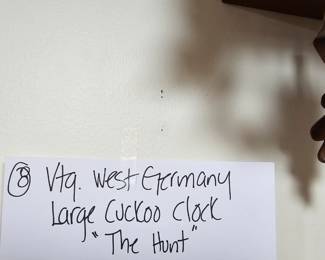 ⑧ Vtg. West Germany
Large Cuckoo Clock
"The Hunt"